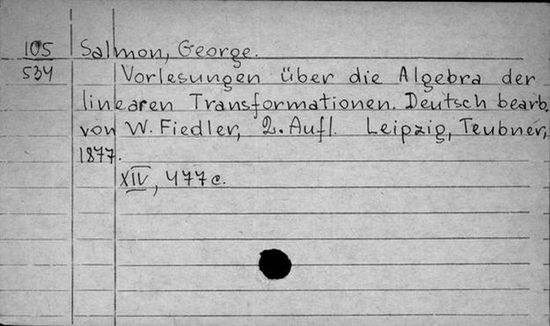 105
534
Salmon, George.
Vorlesungen über die Algebra der
linearen Transformationen. Deutsch bearb.
von W. Fiedler, 2. Aufl. Leipzig, Teubner,
1877.
XIV, 477 c.